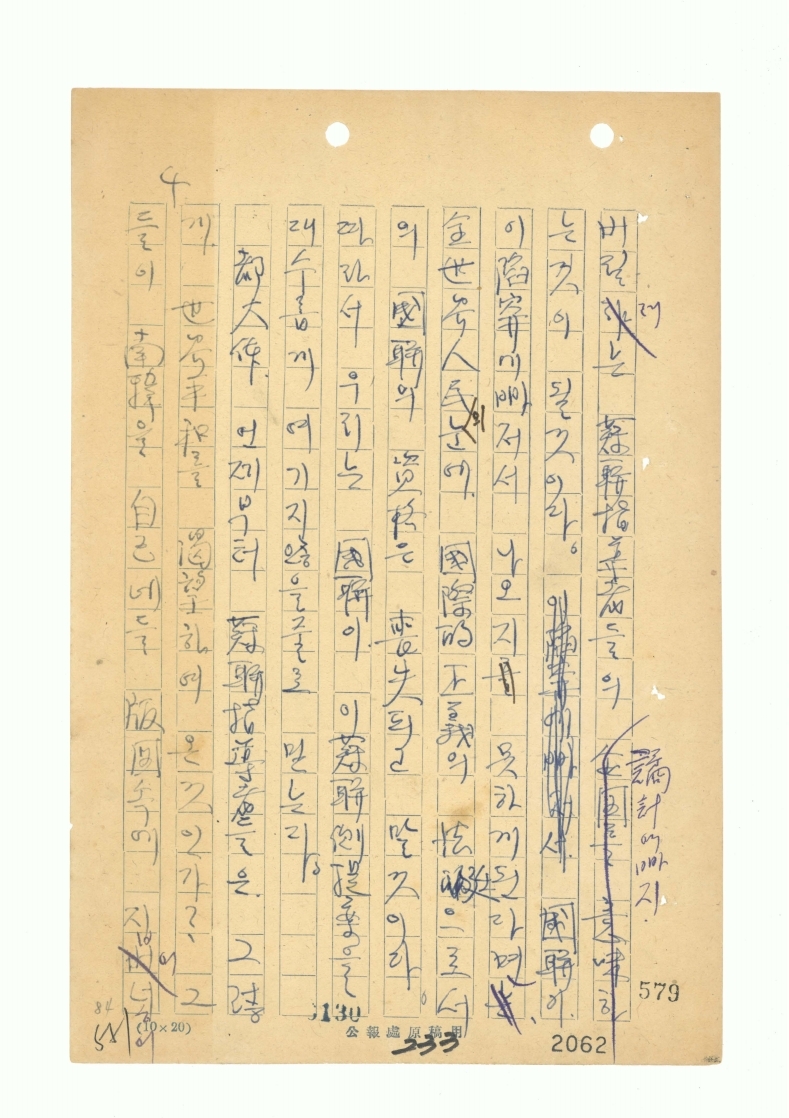 버릴려는 蘇聯指導者들의 謀計에빠지
는것이 될것이라。 國聯이
이 陷穽에빠저서 나오지 못하게된다면
全世界人民의눈에 國際的 正義의 法廷으로서
의 國聯의 資格은 喪失되고 말것이라。
따라서 우리는 國聯이 이蘇聯側提案을
대수롭게 여기지않을줄로 믿는다。
都大体 언제부터 蘇聯指導者들은 그렇
게 世界平和를 渴望하여 온것인가? 그
들이 南韓을 自己네들 版圖속에 집어넣
4
579
1130
(10×20)
公報處原稿用
233
2062
84
551